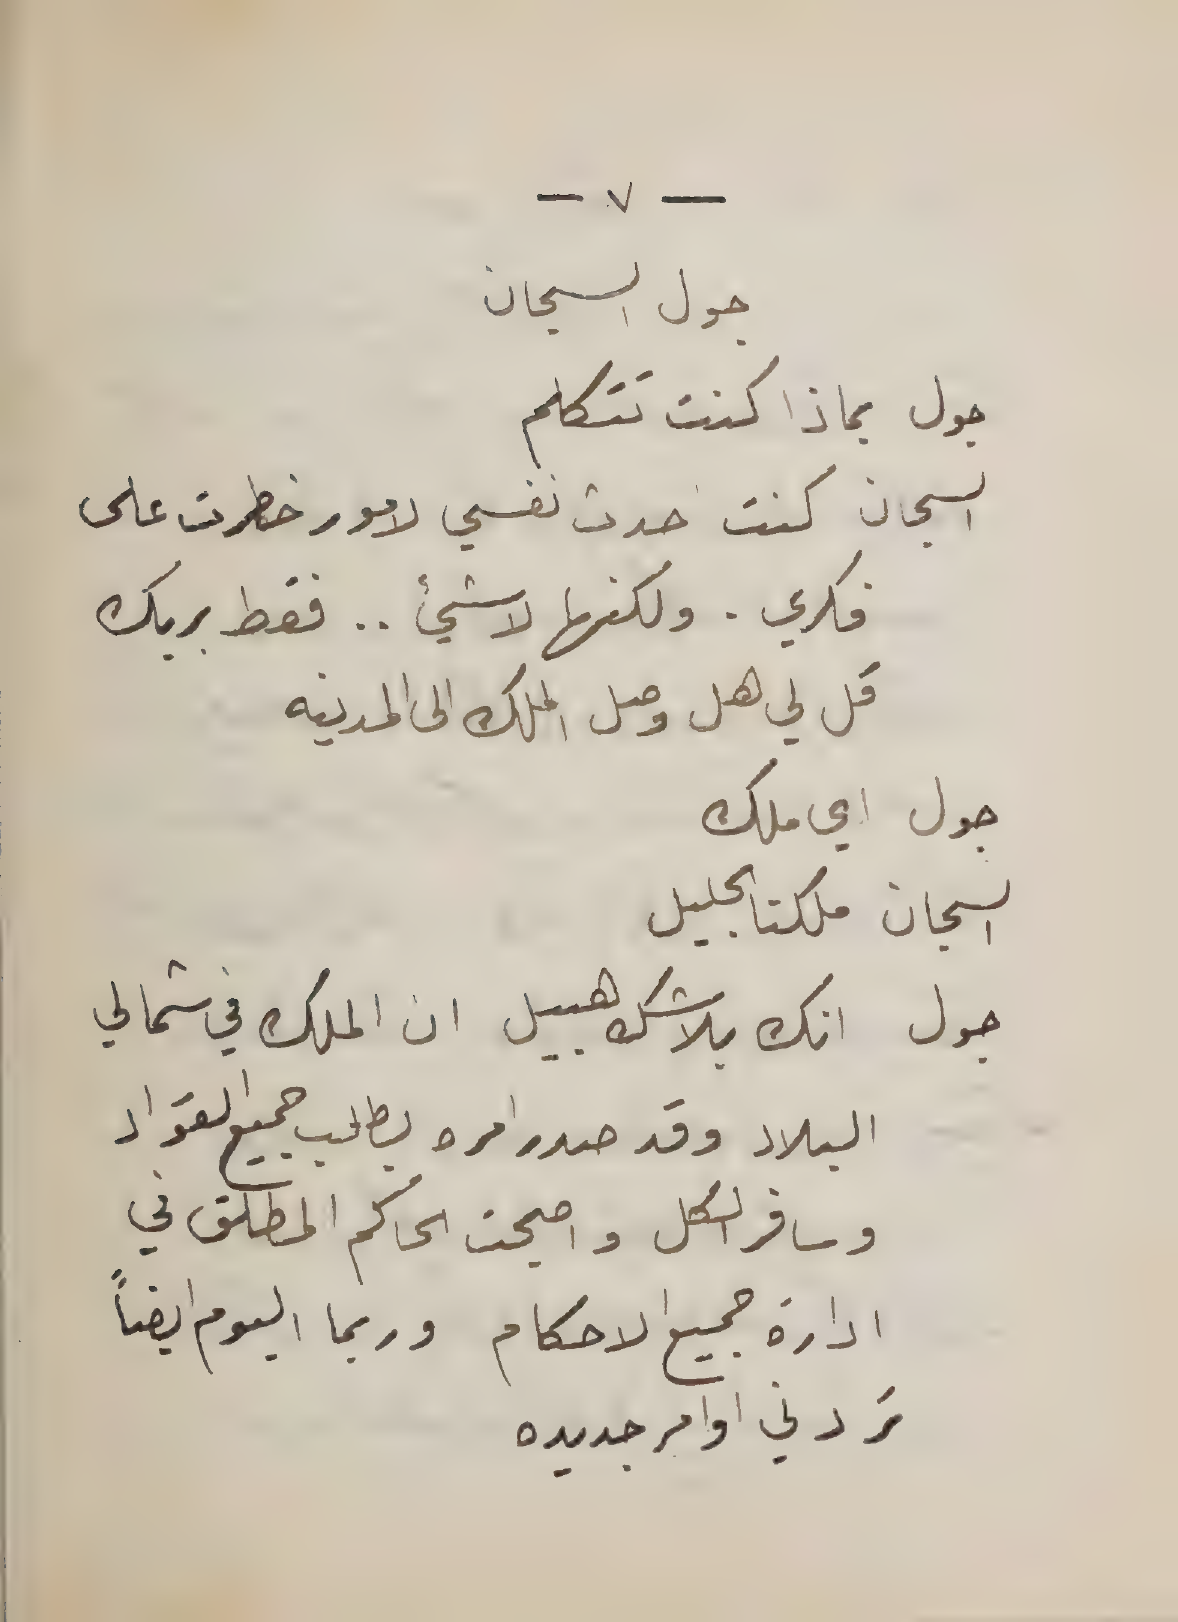 — ٧ —
جول السجان
جول بماذا كنت تتكلم
السجان كنت احدث نفسي لامور خطرت على
فكري . ولكنها لا شيئ .. فقط بربك
قل لي هل وصل الملك الى المدينه
جول اي ملك
السجان ملكنا الجليل
جول انك بلا شك هبيل ان الملك في شمالي
البلاد وقد صدر امره بطلب جميع القواد
وسافر الكل واصبحت الحاكم المطلق في
ادارة جميع الاحكام وربما اليوم ايضاً
تردني اوامر جديده